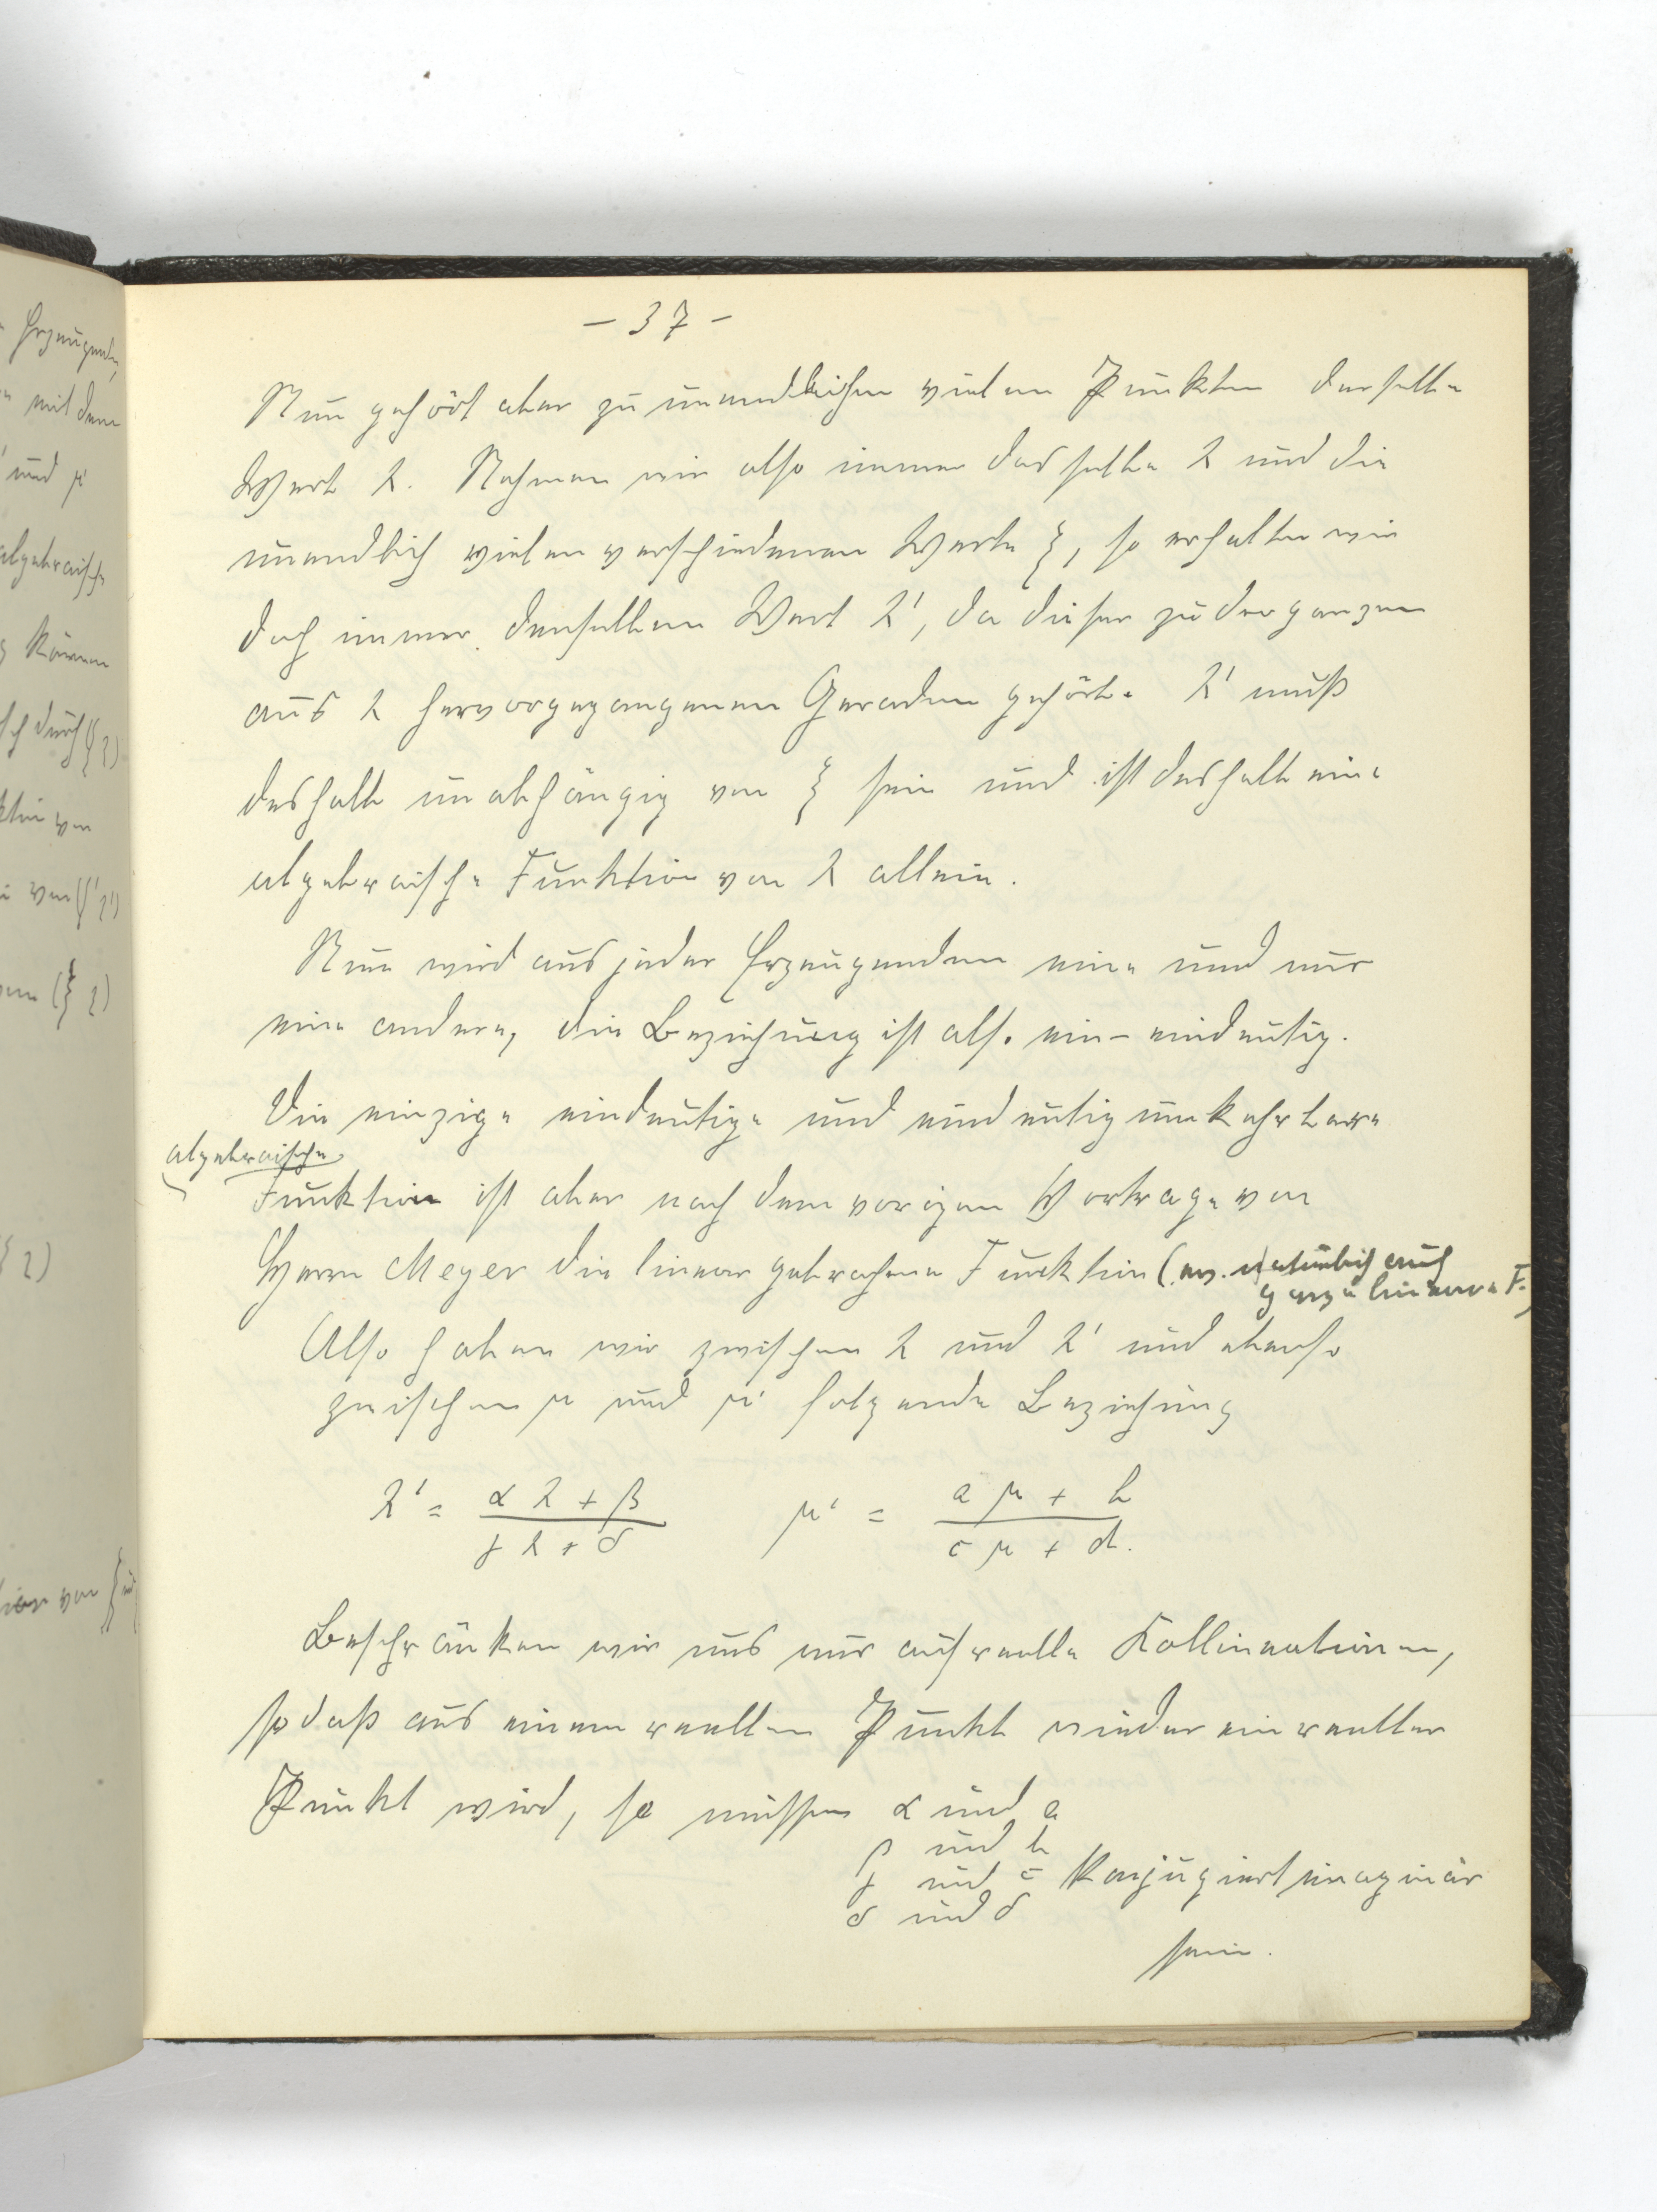 - 37 -
Nun gehört aber zu unendlichen vielen Punkten derselbe
Wert λ. Nehmen wir also immer dasselbe λ und die
unendlich vielen verschiedenen Werte ξ, so erhalten wir
doch immer denselben Wert λ', da dieser zu der ganzen
aus λ hervorgegangenen Geraden gehört. λ' muß
deshalb unabhängig von ξ sein und ist deshalb eine
algebraische Funktion von λ allein.
Nun wird aus jeder Erzeugenden eine und nur
eine andere, die Beziehung ist also ein-eindeutig.
Die einzige eindeutige und eindeutig umkehrbare
algebraische
Funktion ist aber nach dem vorigen Vortrage von
Herrn Meyer die linear gebrochene Funktion (ev. natürlich auch
ganze lineare F.)
Also haben wir zwischen λ und λ' und ebenso
zwischen μ und μ' folgende Beziehung
λ' = (αλ + β)/(γλ + δ) μ' = (aμ + b)/(cμ + d).
Beschränken wir uns nur auf reelle Kollineationen,
sodaß aus einem reellen Punkt wieder ein reeller
Punkt wird, so müssen α und a
β und b
γ und c konjugiert imaginär
δ und δ
sein.
Erzeugenden
mit dem
und μ'
algebraische
können
durch (ξ η)
von
von (ξ' η')
(ξ η)
von ξ und